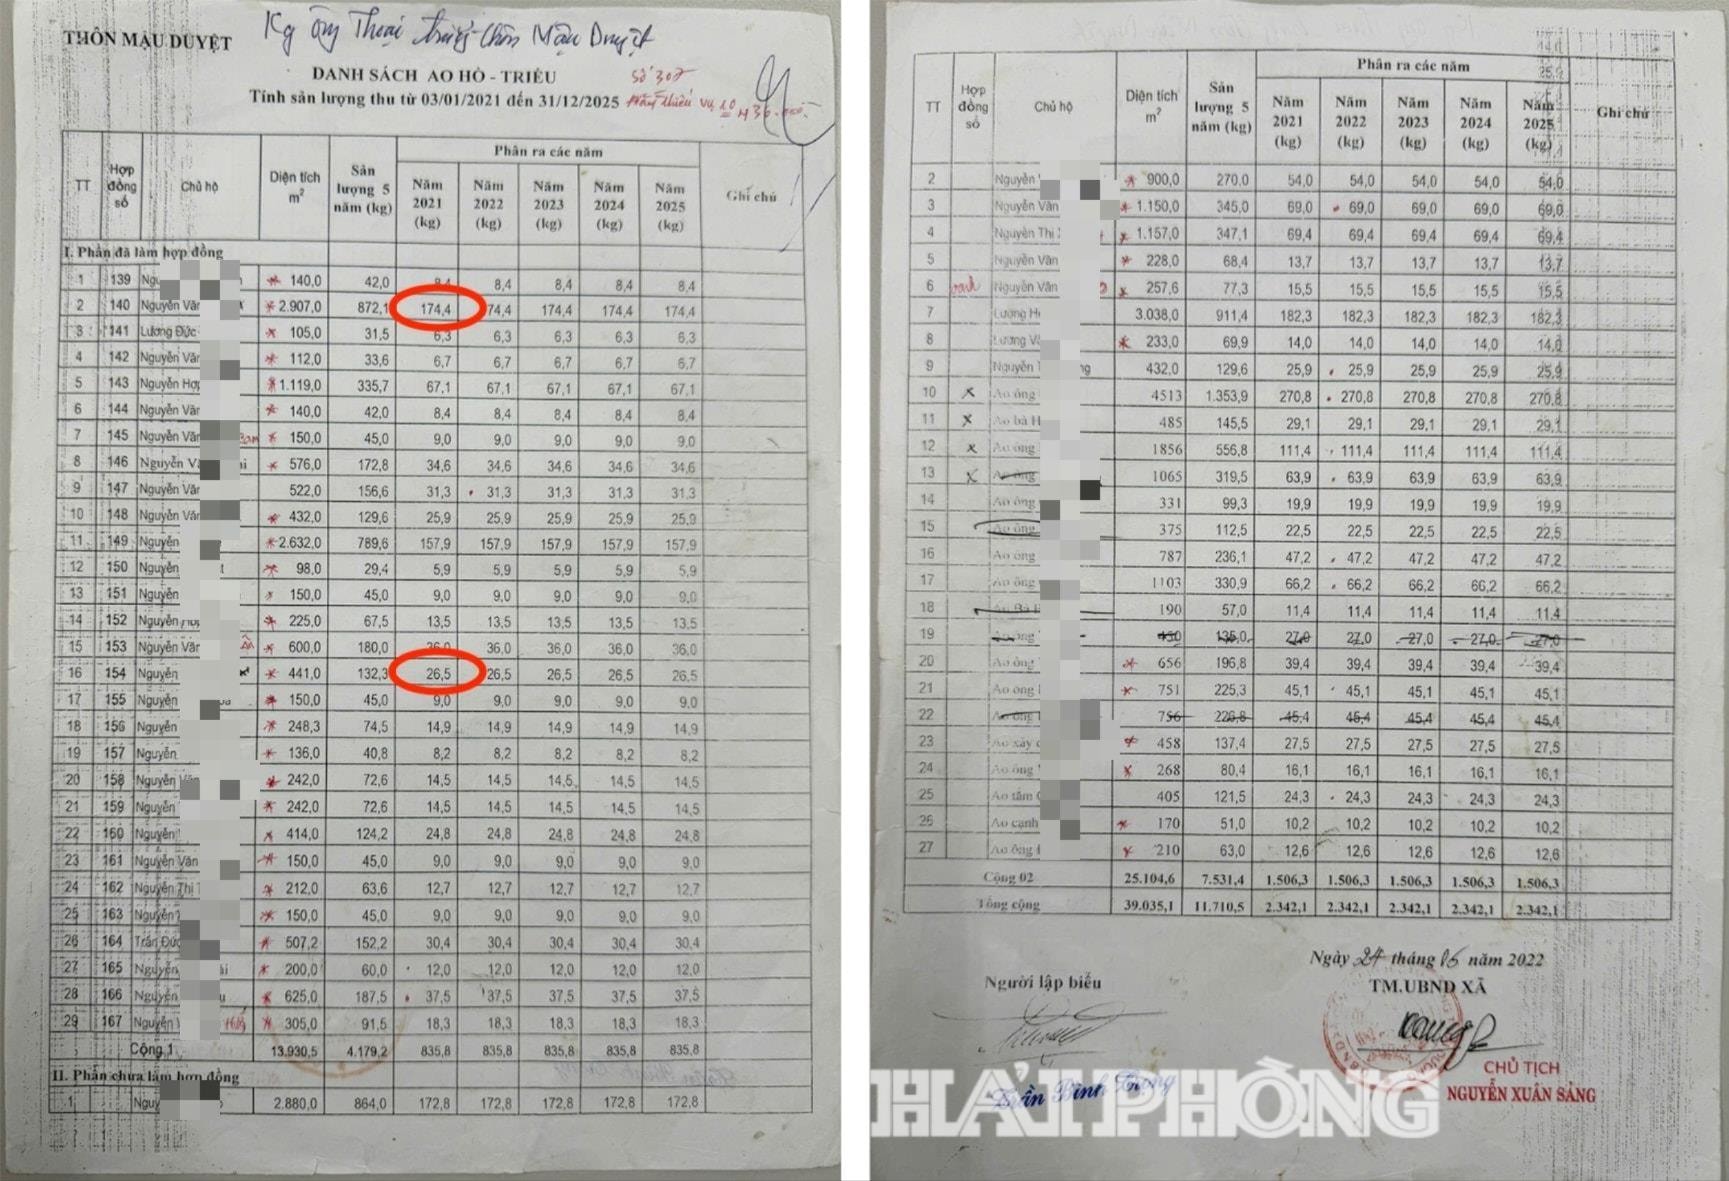 THÔN MẬU DUYỆT
Kg ông Thoại trưởng thôn Mậu Duyệt
DANH SÁCH AO HỒ - TRIỀU
Số 307
Tính sản lượng thu từ 03/01/2021 đến 31/12/2025
TT Hợp đồng số Chủ hộ Diện tích m2 Sản lượng 5 năm (kg) Phân ra các năm Ghi chú
Năm 2021 (kg) Năm 2022 (kg) Năm 2023 (kg) Năm 2024 (kg) Năm 2025 (kg)
I. Phần đã làm hợp đồng
1 139 140,0 42,0 8,4 8,4 8,4 8,4 8,4
2 140 Nguyễn Văn 2.907,0 872,1 174,4 174,4 174,4 174,4 174,4
3 141 Lương Đức 105,0 31,5 6,3 6,3 6,3 6,3 6,3
4 142 Nguyễn Văn 112,0 33,6 6,7 6,7 6,7 6,7 6,7
5 143 Nguyễn Hợp 1.119,0 335,7 67,1 67,1 67,1 67,1 67,1
6 144 Nguyễn Văn 140,0 42,0 8,4 8,4 8,4 8,4 8,4
7 145 Nguyễn Văn 150,0 45,0 9,0 9,0 9,0 9,0 9,0
8 146 Nguyễn 576,0 172,8 34,6 34,6 34,6 34,6 34,6
9 147 Nguyễn Văn 522,0 156,6 31,3 31,3 31,3 31,3 31,3
10 148 Nguyễn Văn 432,0 129,6 25,9 25,9 25,9 25,9 25,9
11 149 Nguyễn 2.632,0 789,6 157,9 157,9 157,9 157,9 157,9
12 150 Nguyễn 98,0 29,4 5,9 5,9 5,9 5,9 5,9
13 151 Nguyễn 150,0 45,0 9,0 9,0 9,0 9,0 9,0
14 152 Nguyễn 225,0 67,5 13,5 13,5 13,5 13,5 13,5
15 153 Nguyễn Văn 600,0 180,0 36,0 36,0 36,0 36,0 36,0
16 154 Nguyễn 441,0 132,3 26,5 26,5 26,5 26,5 26,5
17 155 Nguyễn 150,0 45,0 9,0 9,0 9,0 9,0 9,0
18 156 Nguyễn 248,3 74,5 14,9 14,9 14,9 14,9 14,9
19 157 Nguyễn 136,0 40,8 8,2 8,2 8,2 8,2 8,2
20 158 Nguyễn 242,0 72,6 14,5 14,5 14,5 14,5 14,5
21 159 Nguyễn 242,0 72,6 14,5 14,5 14,5 14,5 14,5
22 160 Nguyễn 414,0 124,2 24,8 24,8 24,8 24,8 24,8
23 161 Nguyễn Văn 150,0 45,0 9,0 9,0 9,0 9,0 9,0
24 162 Nguyễn Thị 212,0 63,6 12,7 12,7 12,7 12,7 12,7
25 163 Nguyễn 150,0 45,0 9,0 9,0 9,0 9,0 9,0
26 164 Trần Đức 507,2 152,2 30,4 30,4 30,4 30,4 30,4
27 165 Nguyễn 200,0 60,0 12,0 12,0 12,0 12,0 12,0
28 166 Nguyễn 625,0 187,5 37,5 37,5 37,5 37,5 37,5
29 167 Nguyễn 305,0 91,5 18,3 18,3 18,3 18,3 18,3
Cộng 1 13.930,5 4.179,2 835,8 835,8 835,8 835,8 835,8
II. Phần chưa làm hợp đồng
1 2.880,0 864,0 172,8 172,8 172,8 172,8 172,8
TT Hợp đồng số Chủ hộ Diện tích m2 Sản lượng 5 năm (kg) Phân ra các năm Ghi chú
Năm 2021 (kg) Năm 2022 (kg) Năm 2023 (kg) Năm 2024 (kg) Năm 2025 (kg)
2 Nguyễn 900,0 270,0 54,0 54,0 54,0 54,0 54,0
3 Nguyễn Văn 1.150,0 345,0 69,0 69,0 69,0 69,0 69,0
4 Nguyễn Thị 1.157,0 347,1 69,4 69,4 69,4 69,4 69,4
5 Nguyễn Văn 228,0 68,4 13,7 13,7 13,7 13,7 13,7
6 Nguyễn Văn 257,6 77,3 15,5 15,5 15,5 15,5 15,5
7 Lương 3.038,0 911,4 182,3 182,3 182,3 182,3 182,3
8 Lương 233,0 69,9 14,0 14,0 14,0 14,0 14,0
9 Nguyễn 432,0 129,6 25,9 25,9 25,9 25,9 25,9
10 x Ao ông 4513 1.353,9 270,8 270,8 270,8 270,8 270,8
11 x Ao bà 485 145,5 29,1 29,1 29,1 29,1 29,1
12 x Ao ông 1856 556,8 111,4 111,4 111,4 111,4 111,4
13 x Ao ông 1065 319,5 63,9 63,9 63,9 63,9 63,9
14 Ao ông 331 99,3 19,9 19,9 19,9 19,9 19,9
15 Ao ông 375 112,5 22,5 22,5 22,5 22,5 22,5
16 Ao ông 787 236,1 47,2 47,2 47,2 47,2 47,2
17 Ao ông 1103 330,9 66,2 66,2 66,2 66,2 66,2
18 Ao Bà 190 57,0 11,4 11,4 11,4 11,4 11,4
19 Ao ông 450 135,0 27,0 27,0 27,0 27,0 27,0
20 Ao ông 656 196,8 39,4 39,4 39,4 39,4 39,4
21 Ao ông 751 225,3 45,1 45,1 45,1 45,1 45,1
22 Ao ông 756 226,8 45,4 45,4 45,4 45,4 45,4
23 Ao xây 458 137,4 27,5 27,5 27,5 27,5 27,5
24 Ao ông 268 80,4 16,1 16,1 16,1 16,1 16,1
25 Ao tắm 405 121,5 24,3 24,3 24,3 24,3 24,3
26 Ao cạnh 170 51,0 10,2 10,2 10,2 10,2 10,2
27 Ao ông 210 63,0 12,6 12,6 12,6 12,6 12,6
Cộng 02 25.104,6 7.531,4 1.506,3 1.506,3 1.506,3 1.506,3 1.506,3
Tổng cộng 39.035,1 11.710,5 2.342,1 2.342,1 2.342,1 2.342,1 2.342,1
Ngày 24 tháng 05 năm 2022
Người lập biểu
TM.UBND XÃ
CHỦ TỊCH
NGUYỄN XUÂN SẢNG
HẢI PHÒNG